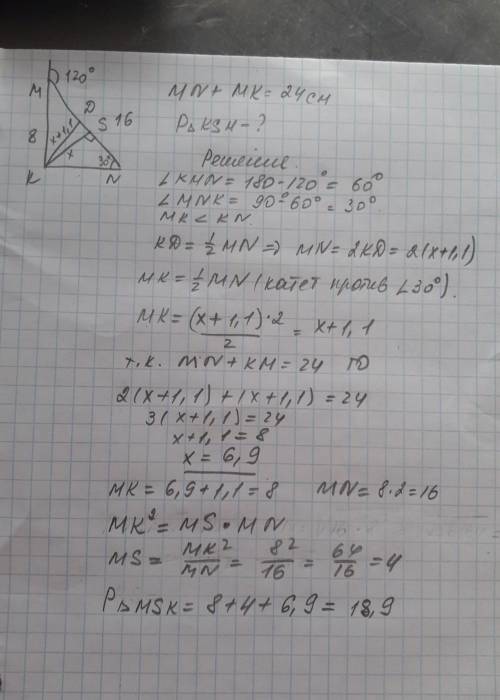 120°
M
D
S 16
8
x+1,1
x
30°
K
N
MN + MK = 24 см
P△KSM - ?
Решение.
∠KMN = 180 - 120° = 60°
∠MNK = 90° - 60° = 30°
MK < KN
KD = 1/2 MN => MN = 2KD = 2(x+1,1)
MK = 1/2 MN (катет против ∠30°).
MK = (x+1,1)·2/2 = x+1,1
т.к. MN + KM = 24 то
2(x+1,1) + (x+1,1) = 24
3(x+1,1) = 24
x+1,1 = 8
x = 6,9
MK = 6,9+1,1 = 8 MN = 8·2 = 16
MK² = MS · MN
MS = MK²/MN = 8²/16 = 64/16 = 4
P△MSK = 8+4+6,9 = 18,9